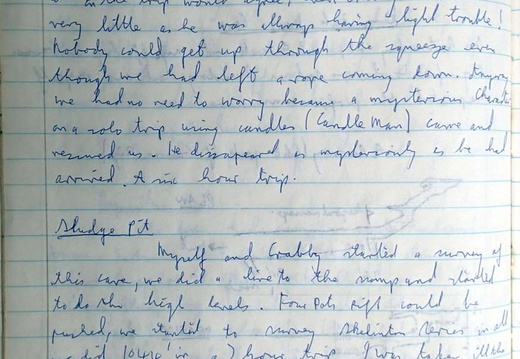 in the trip would agree,
very little as he was always having light trouble!
Nobody could get up through the squeeze even
though we had left a rope coming down. Anyway
we had no need to worry because a mysterious character
on a solo trip using candles (Candle Man) came and
rescued us. He disappeared as mysteriously as he had
arrived. A six hour trip.
Sludge Pit
Myself and Crabby started a survey of
this cave, we did a line to the sump and started
to do the high levels. Four Pots Rift could be
pushed, we started to survey Skeleton Series in all
did hour trip